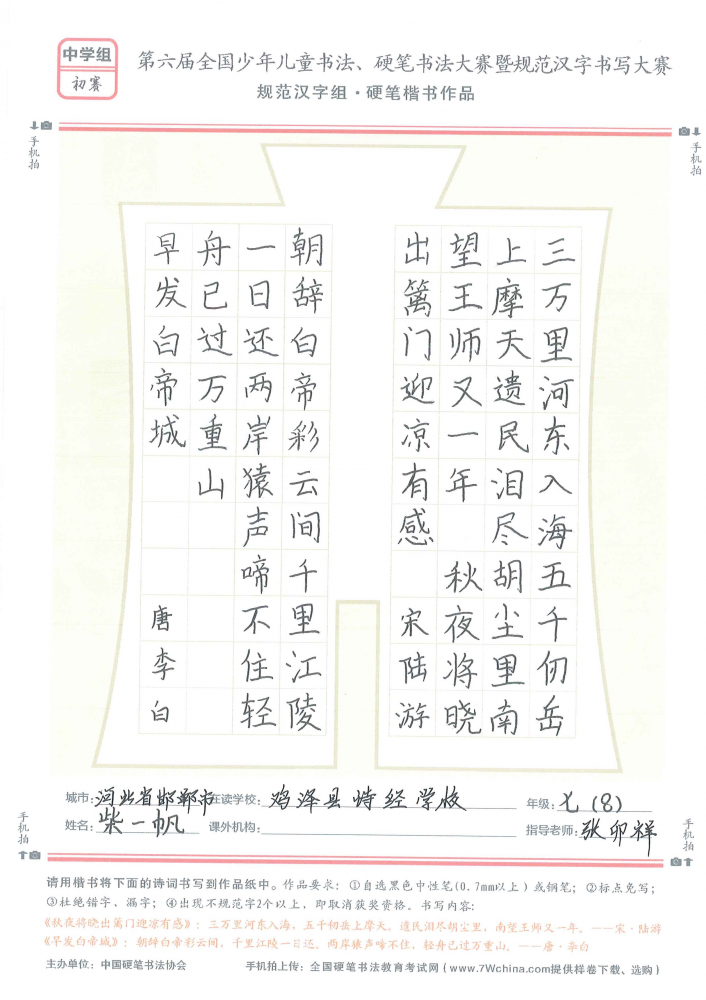 中学组
初赛
第六届全国少年儿童书法、硬笔书法大赛暨规范汉字书写大赛
规范汉字组·硬笔楷书作品
手机拍
手机拍
三万里河东入海五千仞岳
上摩天遗民泪尽胡尘里南
望王师又一年 秋夜将晓
出篱门迎凉有感 宋陆游
朝辞白帝彩云间千里江陵
一日还两岸猿声啼不住轻
舟已过万重山
早发白帝城 唐李白
城市:河北省邯郸市 在读学校:鸡泽县诗经学校 年级:七(8)
姓名:柴一帆 课外机构: 指导老师:张卯祥
手机拍
手机拍
请用楷书将下面的诗词书写到作品纸中。作品要求:①自选黑色中性笔(0.7mm以上)或钢笔;②标点免写;
③杜绝错字、漏字;④出现不规范字2个以上,即取消获奖资格。书写内容:
《秋夜将晓出篱门迎凉有感》:三万里河东入海,五千仞岳上摩天。遗民泪尽胡尘里,南望王师又一年。——宋·陆游
《早发白帝城》:朝辞白帝彩云间,千里江陵一日还。两岸猿声啼不住,轻舟已过万重山。——唐·李白
主办单位:中国硬笔书法协会 手机拍上传:全国硬笔书法教育考试网(www.7Wchina.com提供样卷下载、选购)